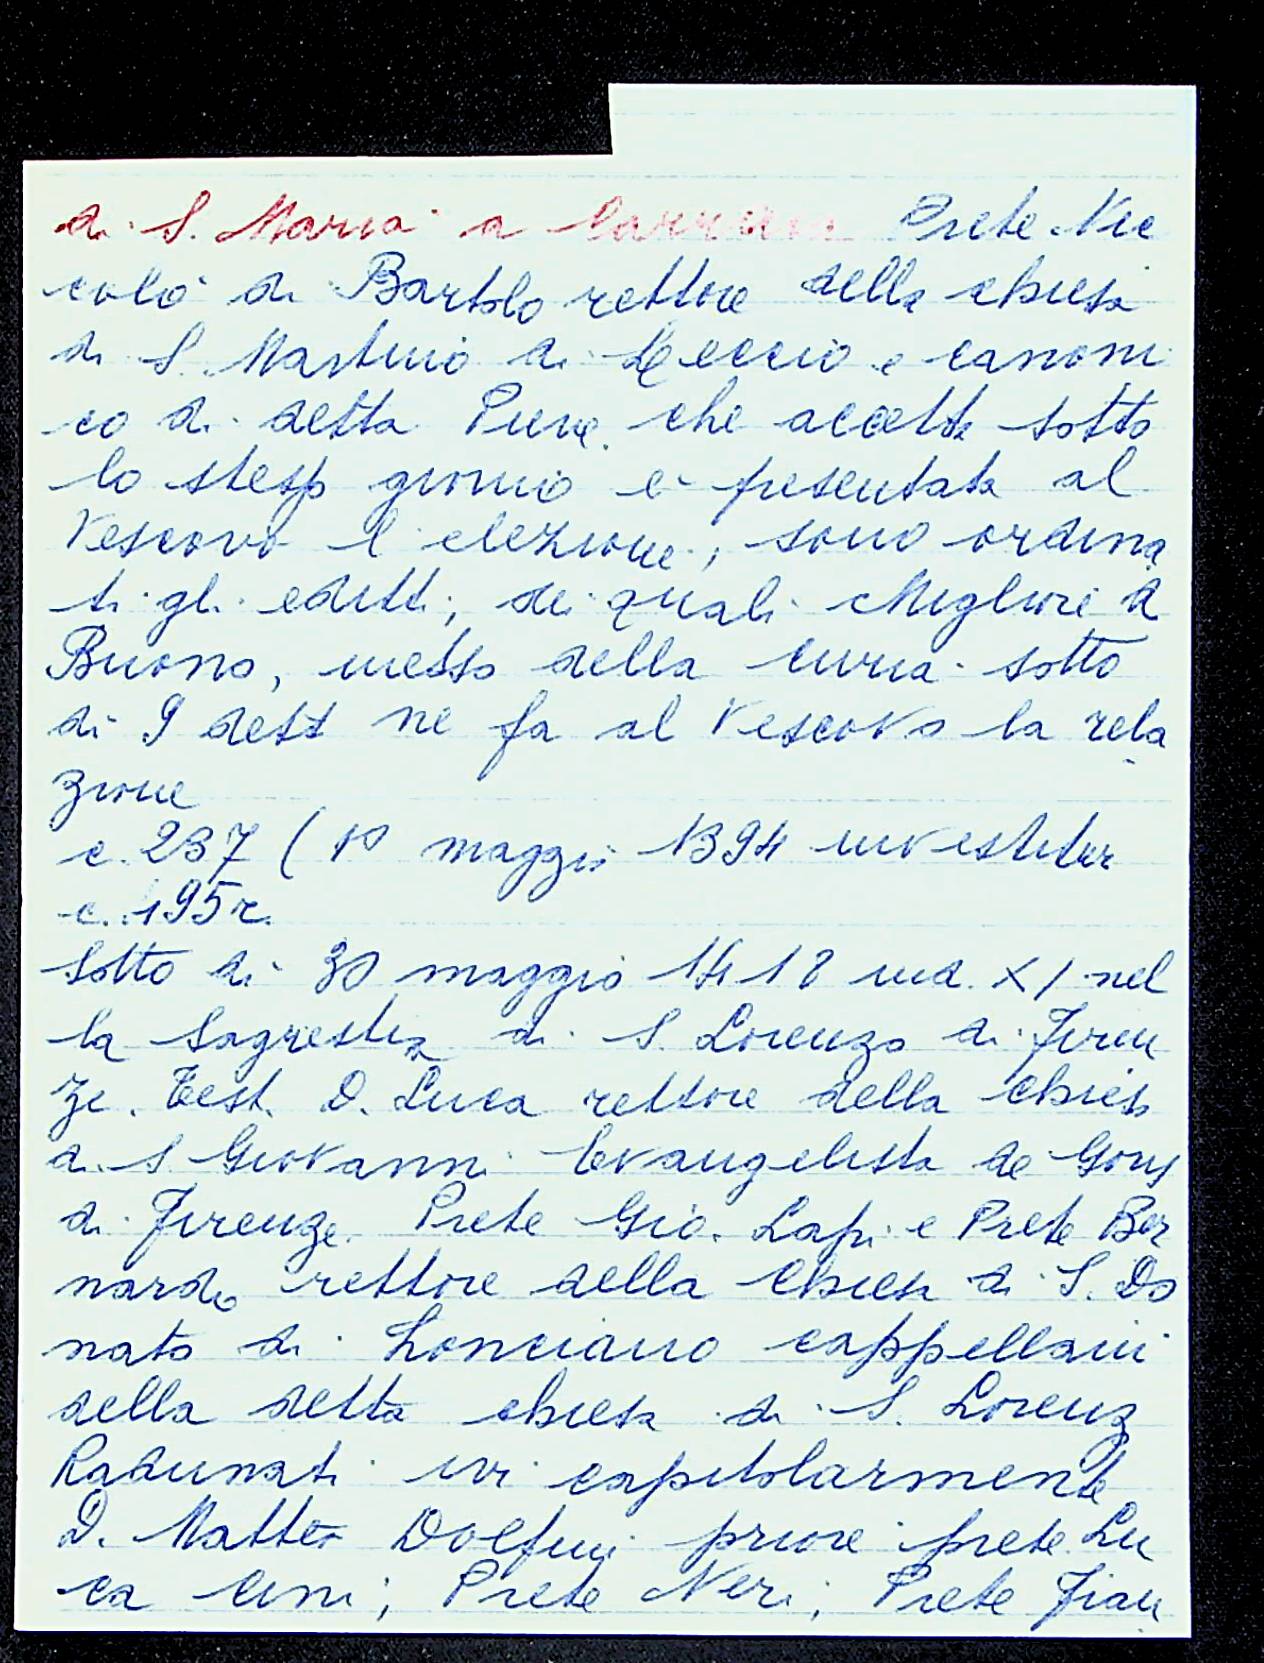 di S. Maria a Carraia Prete Nic
colò di Bartolo rettore della chiesa
di S. Martino di Leccio e canoni
co di detta Pieve. che accetta sotto
lo stesso giorno e presentata al
Vescovo l'elezione, sono ordina
ti gli editti, dei quali Migliore d
Buono, messo della curia sotto
di 9 dett ne fa al Vescovo la rela
zione
c. 237 ( 10 maggio 1394 investitur
c. 195r.
Sotto di 30 maggio 1418 ind. XI nel
la Sagrestia di S. Lorenzo di Firen
ze. Test. D. Luca rettore della chiesa
di S Giovanni Evangelista de
di Firenze. Prete Gio. Lapi e Prete Ber
nardo rettore della Chiesa di S. Do
nato di Lonciano cappellani
della detta chiesa di S. Lorenz
Radunati ivi capitolarmente
D. Matteo Dolfini priore prete Lu
ca Cini; Prete Neri; Prete Fran